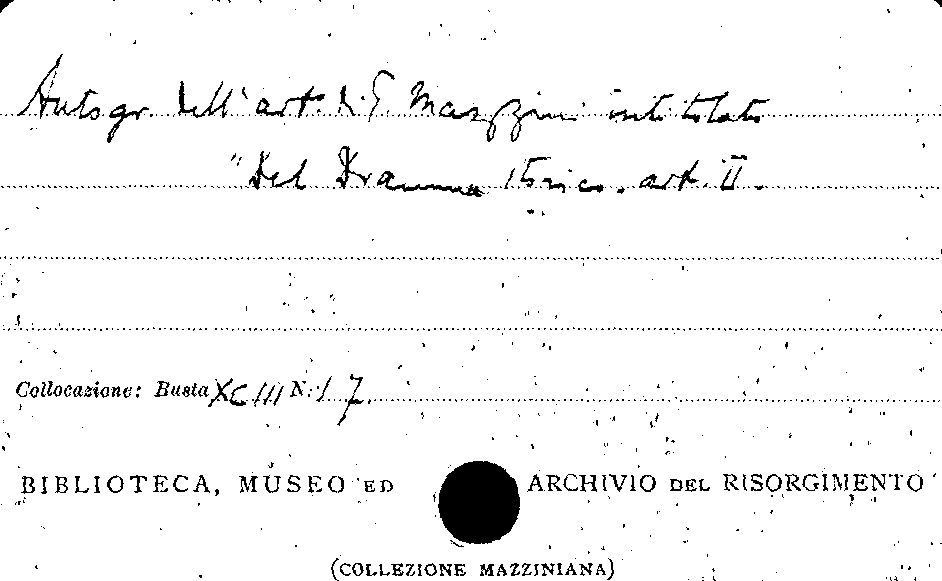 Autogr. dell'art. di G. Mazzini intitolato
"Del Dramma storico. art. II.
Collocazione: Busta XCIII N. 17.
BIBLIOTECA, MUSEO ED ARCHIVIO DEL RISORGIMENTO
(COLLEZIONE MAZZINIANA)